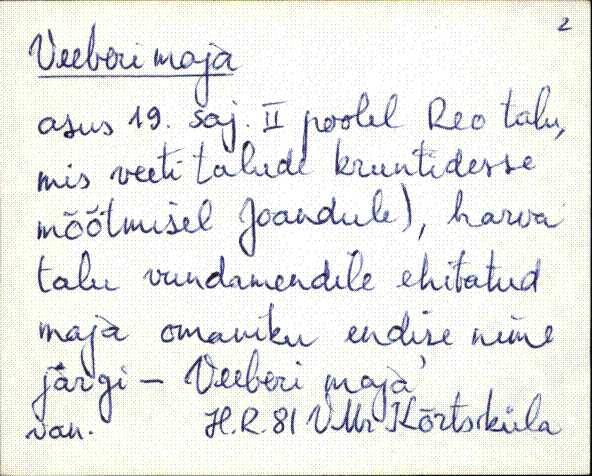 2
Veeberi maja
asus 19. saj. II poolel Reo talu,
mis veeti talude kruntidesse
mõõtmisel Joandule), harva
talu vundamendile ehitatud
maja omaniku endise nime
järgi – Veeberi maja
van. H.R. 81 VMr Kõrtsküla